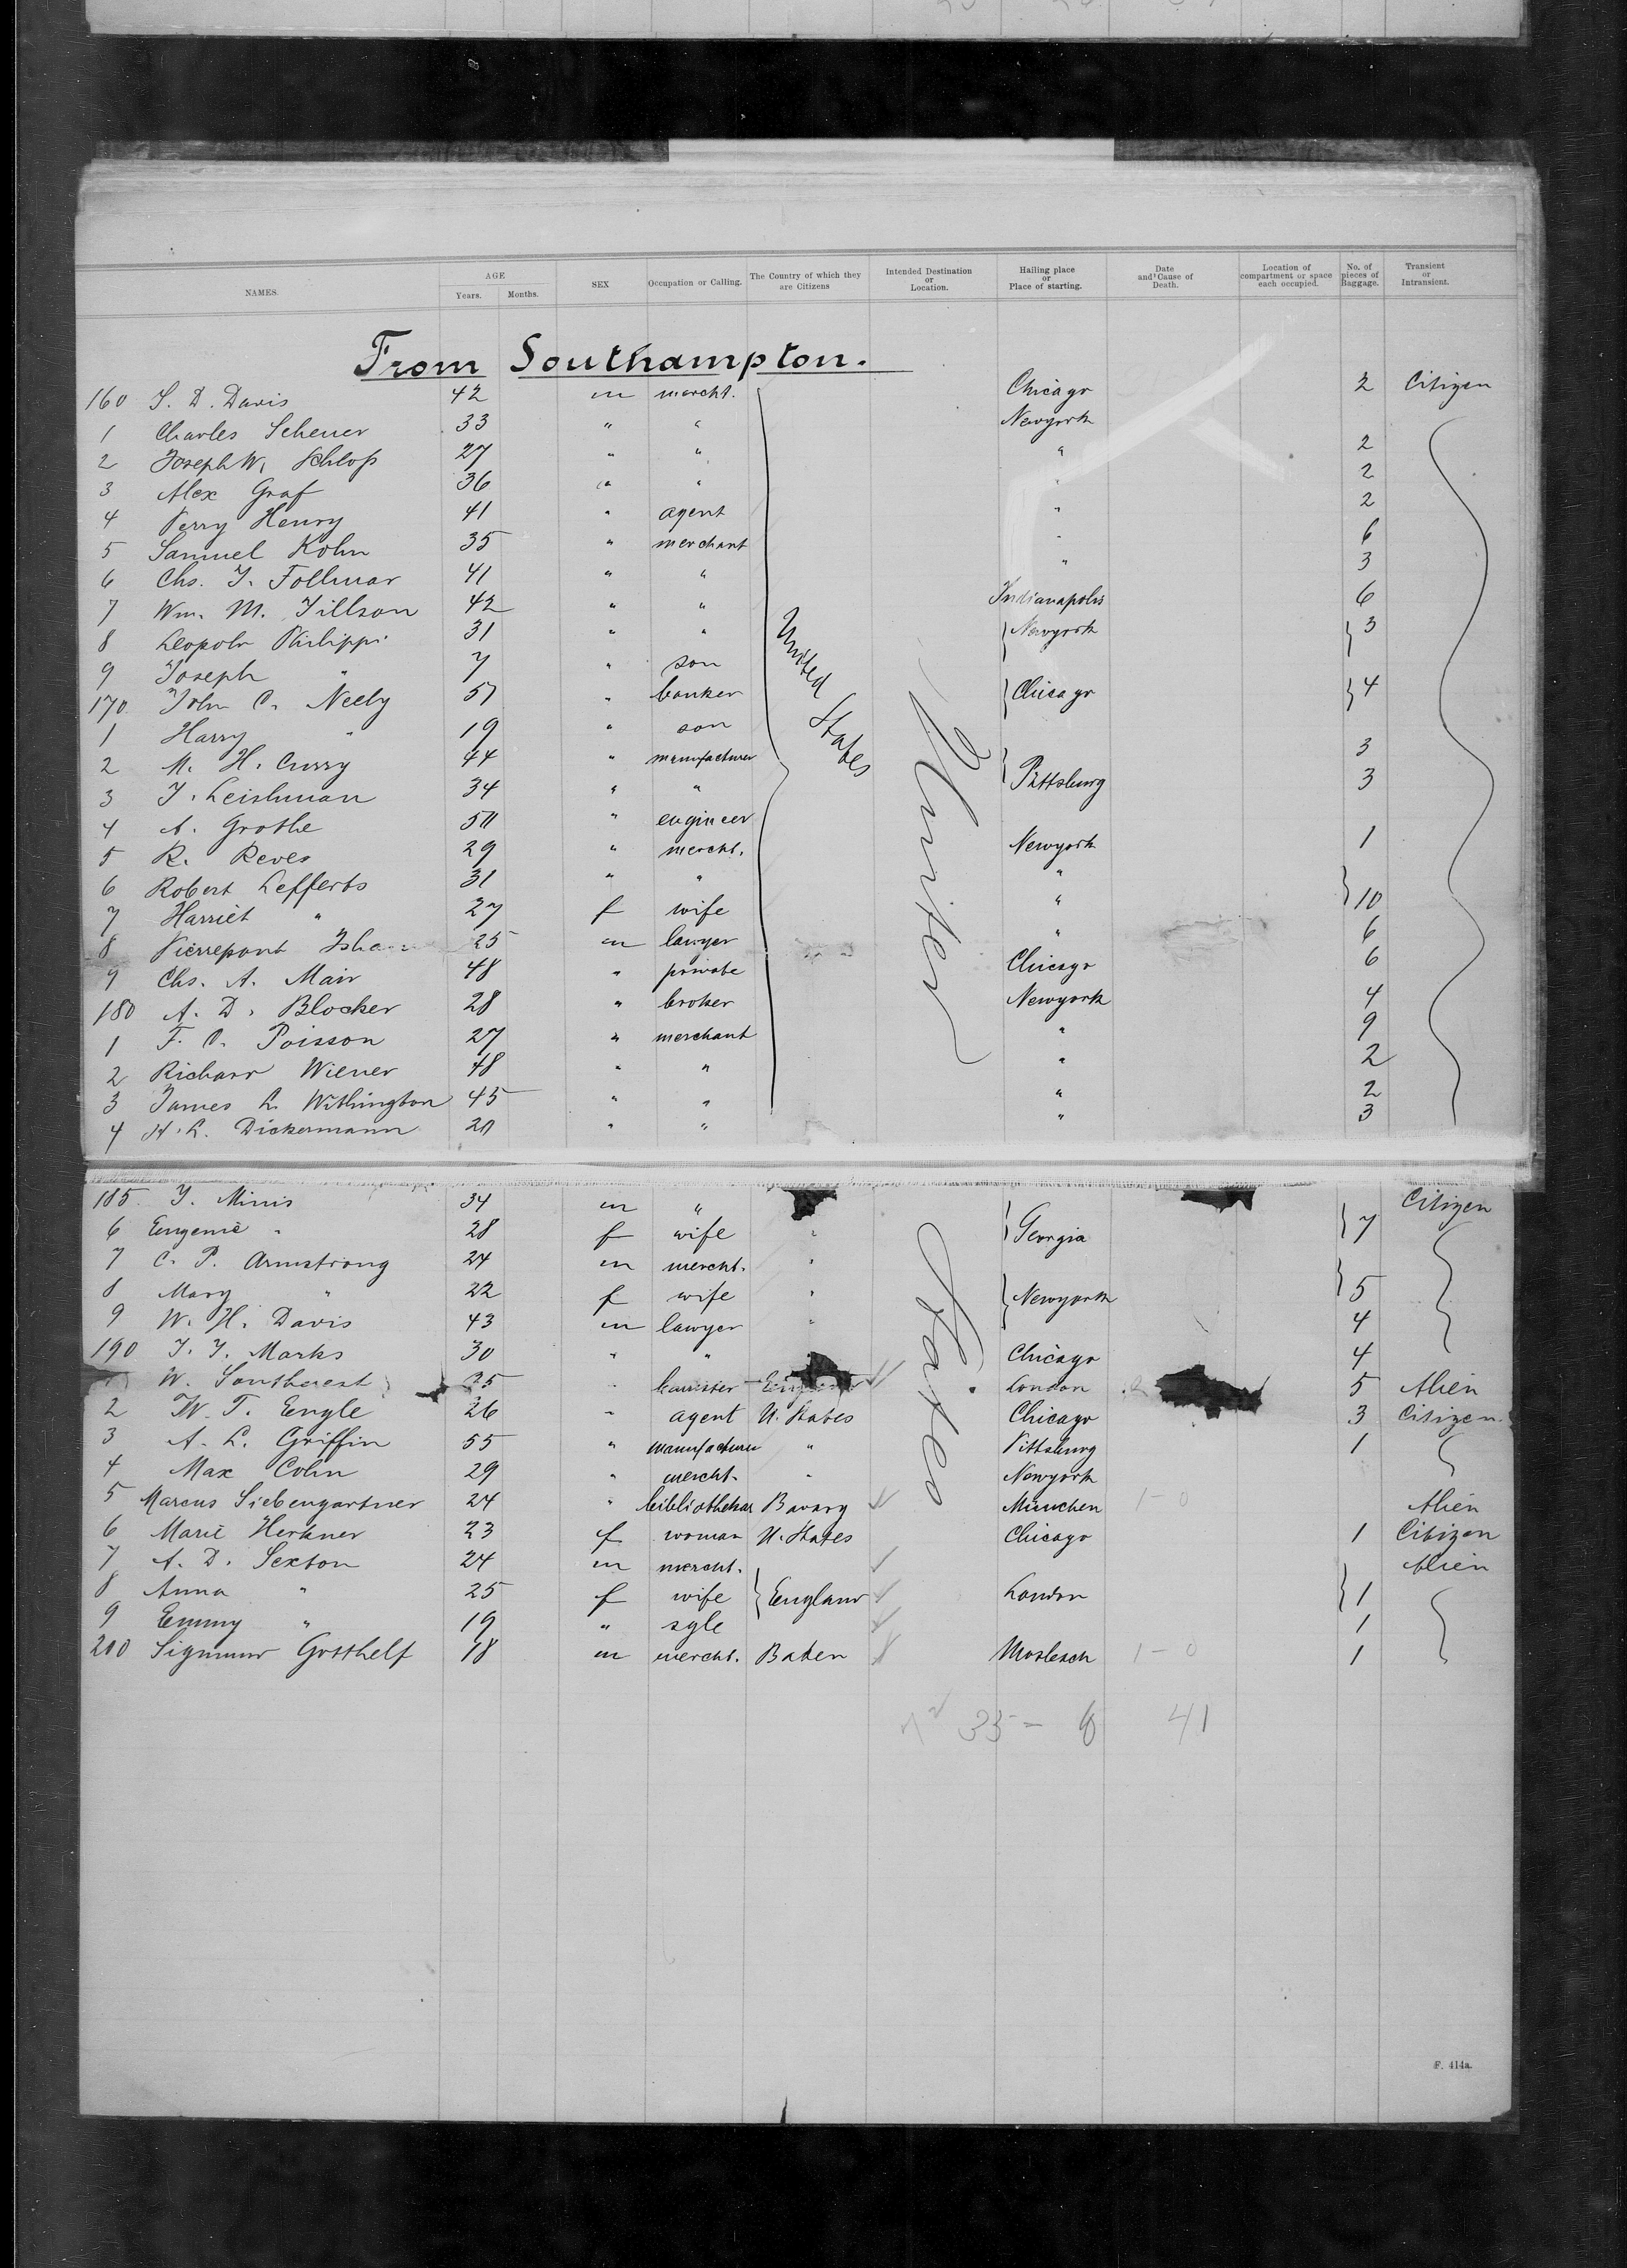 NAMES. AGE Years. Months. SEX Occupation or Calling. The Country of which they are Citizens Intended Destination or Location. Hailing place or Place of starting. Date and Cause of Death. Location of compartment or space each occupied. No. of pieces of Baggage. Transient or Intransient.
From Southampton.
160 S. D. Davis 42 m mercht. Chicago 2 Citizen
1 Charles Scheuer 33 " " Newyork
2 Joseph W. Schloß 27 " " " 2
3 Alex Graf 36 " " " 2
4 Perry Henry 41 " agent " 2
5 Samuel Kohn 35 " merchant " 6
6 Chs. J. Follmar 41 " " " 3
7 Wm. M. Tillson 42 " " Indianapolis 6
8 Leopold Philippi 31 " " Newyork 3
9 Joseph " 7 " son
170 John C. Neely 51 " banker Chicago 4
1 Harry " 19 " son
2 M. H. Curry 44 " manufacturer 3
3 J. Leishman 34 " " Pittsburg 3
4 A. Grothe 50 " engineer
5 R. Reves 29 " mercht. Newyork 1
6 Robert Lefferts 31 " " "
7 Harriet " 27 f wife " 10
8 Pierrepont 25 m lawyer " 6
9 Chs. A. Mair 48 " private Chicago 6
180 A. D. Blocker 28 " broker Newyork 4
1 F. C. Poisson 27 " merchant " 9
2 Richard Wiener 48 " " " 2
3 James L. Withington 45 " " " 2
4 H. L. Dickermann 20 " " " 3
United States
United
States
185 J. Minis 34 m " Citizen
6 Eugenie " 28 f wife " Georgia 7
7 C. P. Armstrong 24 m mercht. "
8 Mary " 22 f wife " Newyork 5
9 W. H. Davis 43 m lawyer " 4
190 J. J. Marks 30 " " Chicago 4
W. 25 " London 5 Alien
2 W. T. Engle 26 " agent U. States Chicago 3 Citizen
3 A. L. Griffin 55 " manufacturer " Pittsburg 1
4 Max Cohn 29 " mercht. " Newyork
5 Marcus Siebengartner 24 " bibliothekar Bavary München 1-0 Alien
6 Marie Herkner 23 f woman U. States Chicago 1 Citizen
7 A. D. Sexton 24 m mercht. Alien
8 Anna " 25 f wife England London 1
9 Emmy " 19 " sgle 1
200 Sigmund Gotthelf 18 m mercht. Baden Mosbach 1-0 1
35 - 6 41
F. 414a.